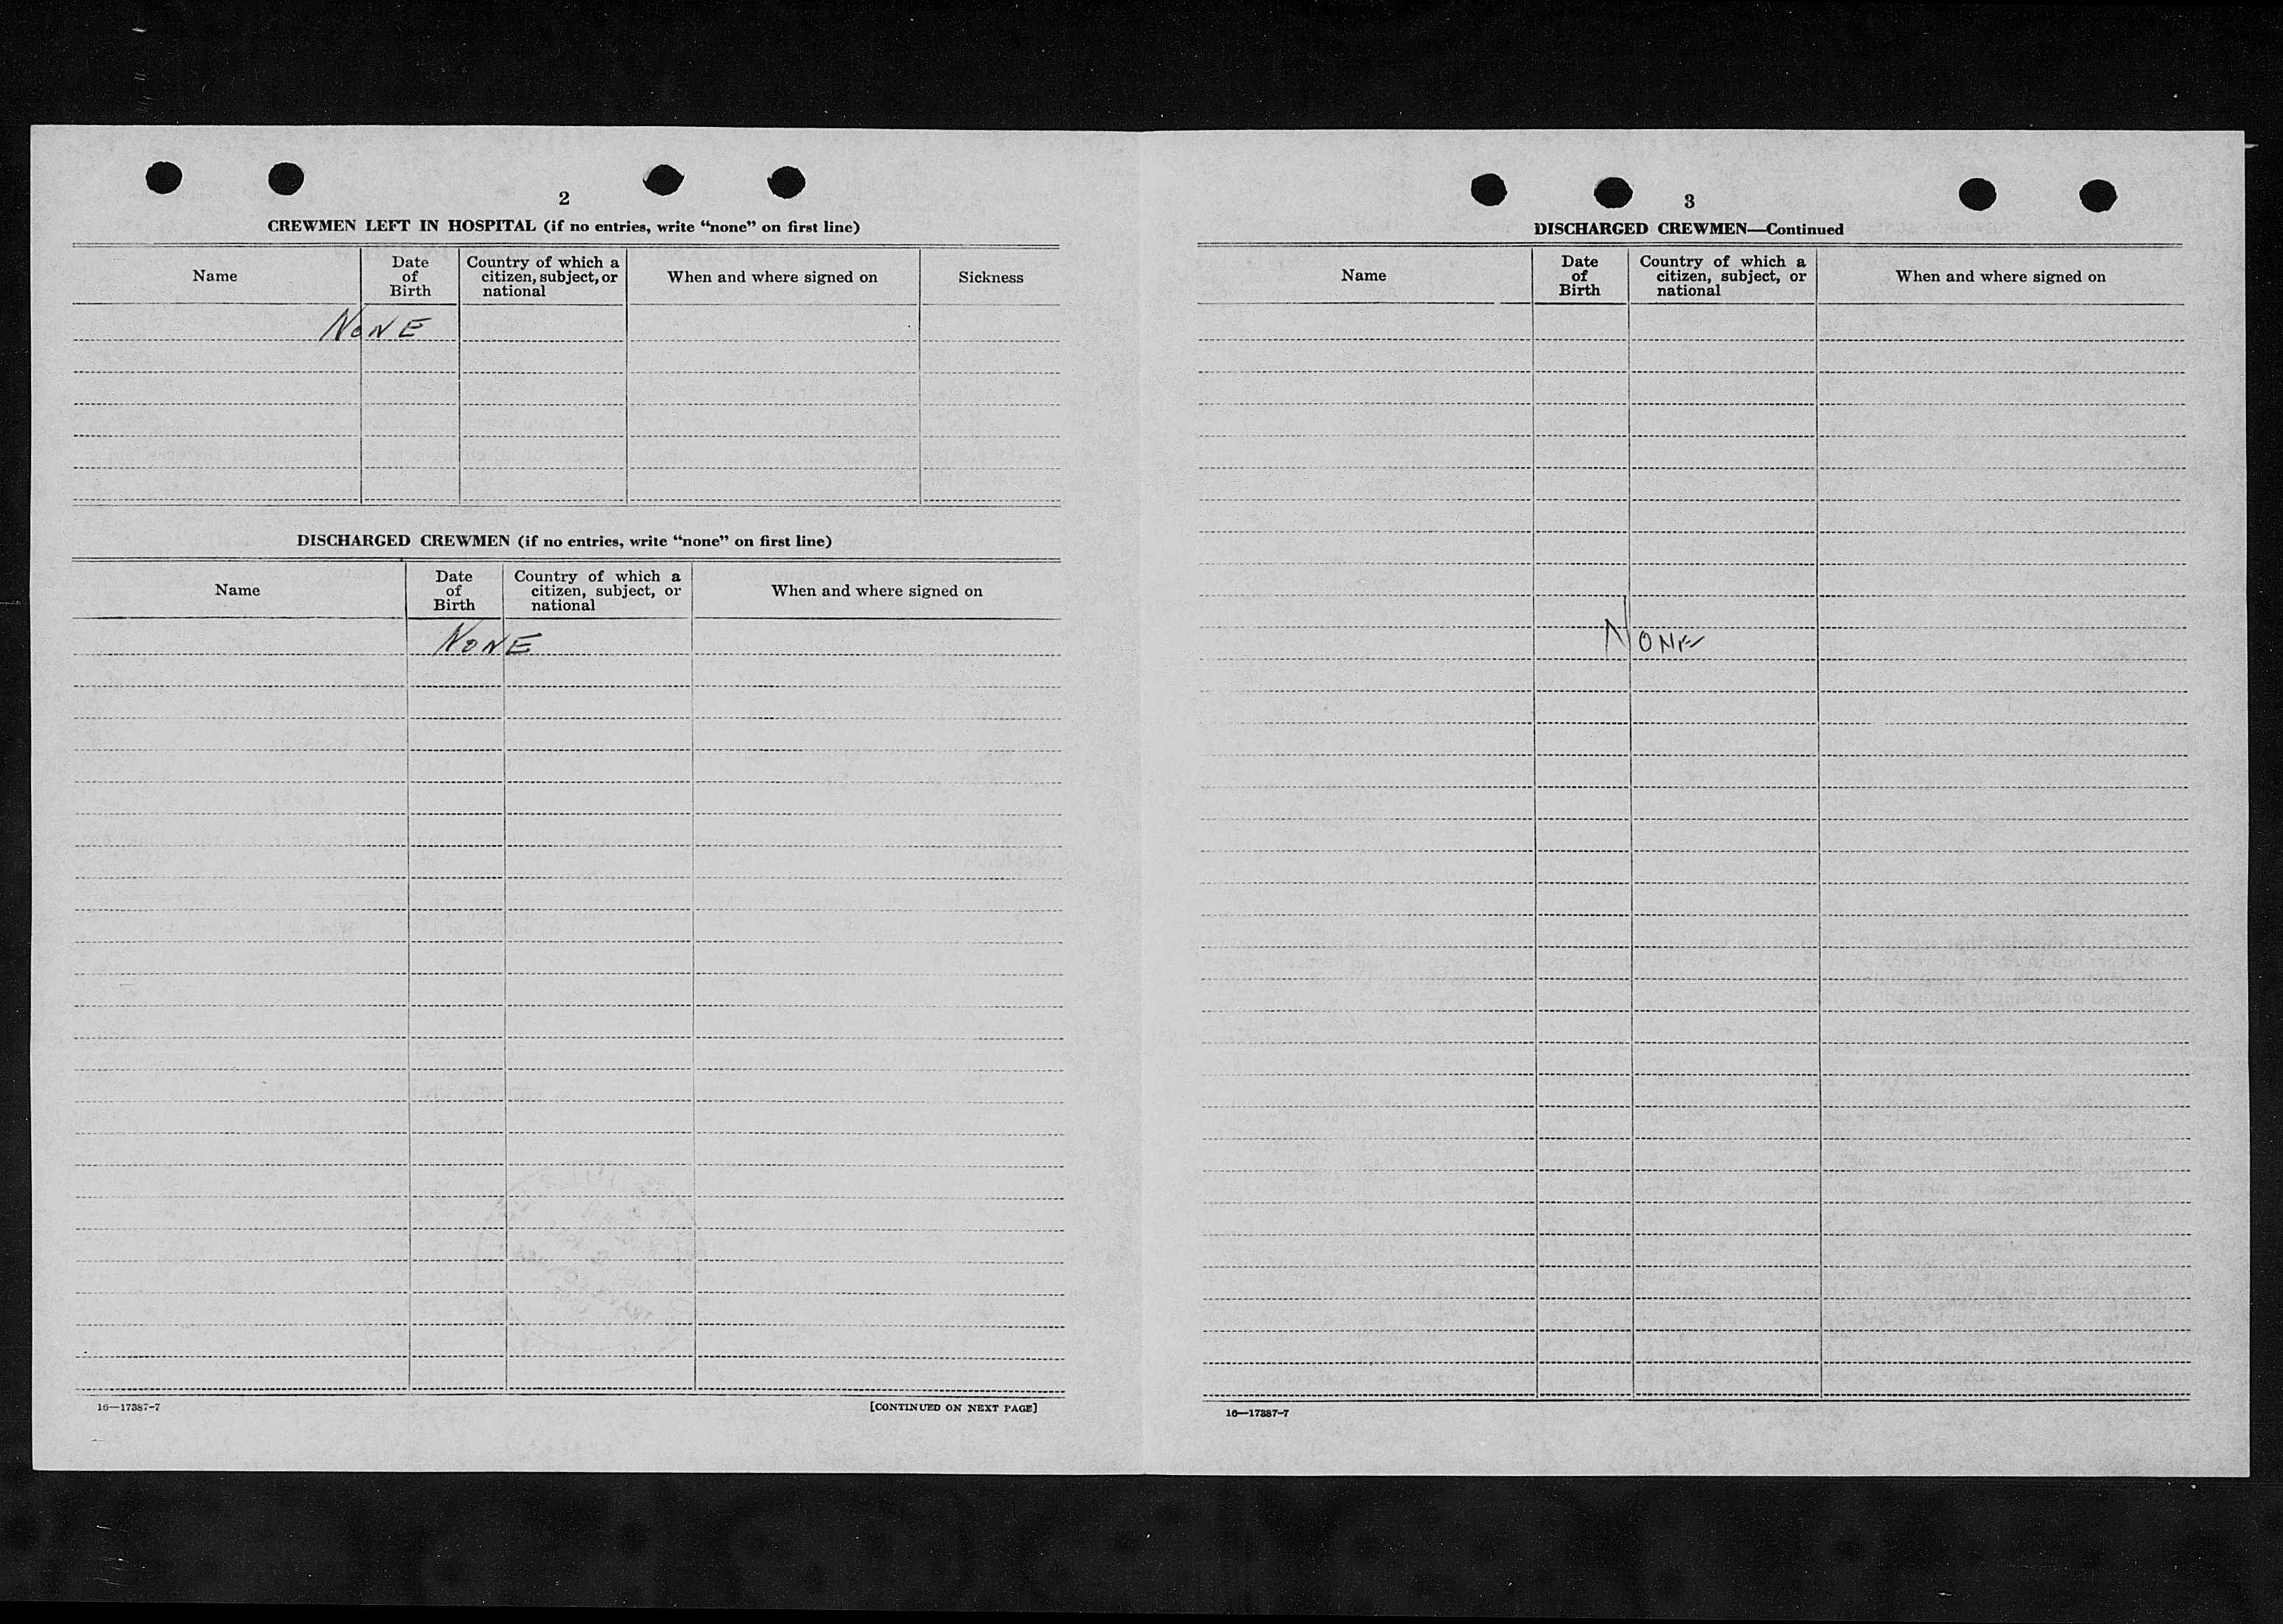 2
CREWMEN LEFT IN HOSPITAL (if no entries, write “none” on first line)
Name
Date of Birth
Country of which a citizen, subject, or national
When and where signed on
Sickness
NONE
DISCHARGED CREWMEN (if no entries, write “none” on first line)
Name
Date of Birth
Country of which a citizen, subject, or national
When and where signed on
NONE
16—17387-7
[CONTINUED ON NEXT PAGE]
3
DISCHARGED CREWMEN—Continued
Name
Date of Birth
Country of which a citizen, subject, or national
When and where signed on
NONE
16—17387-7